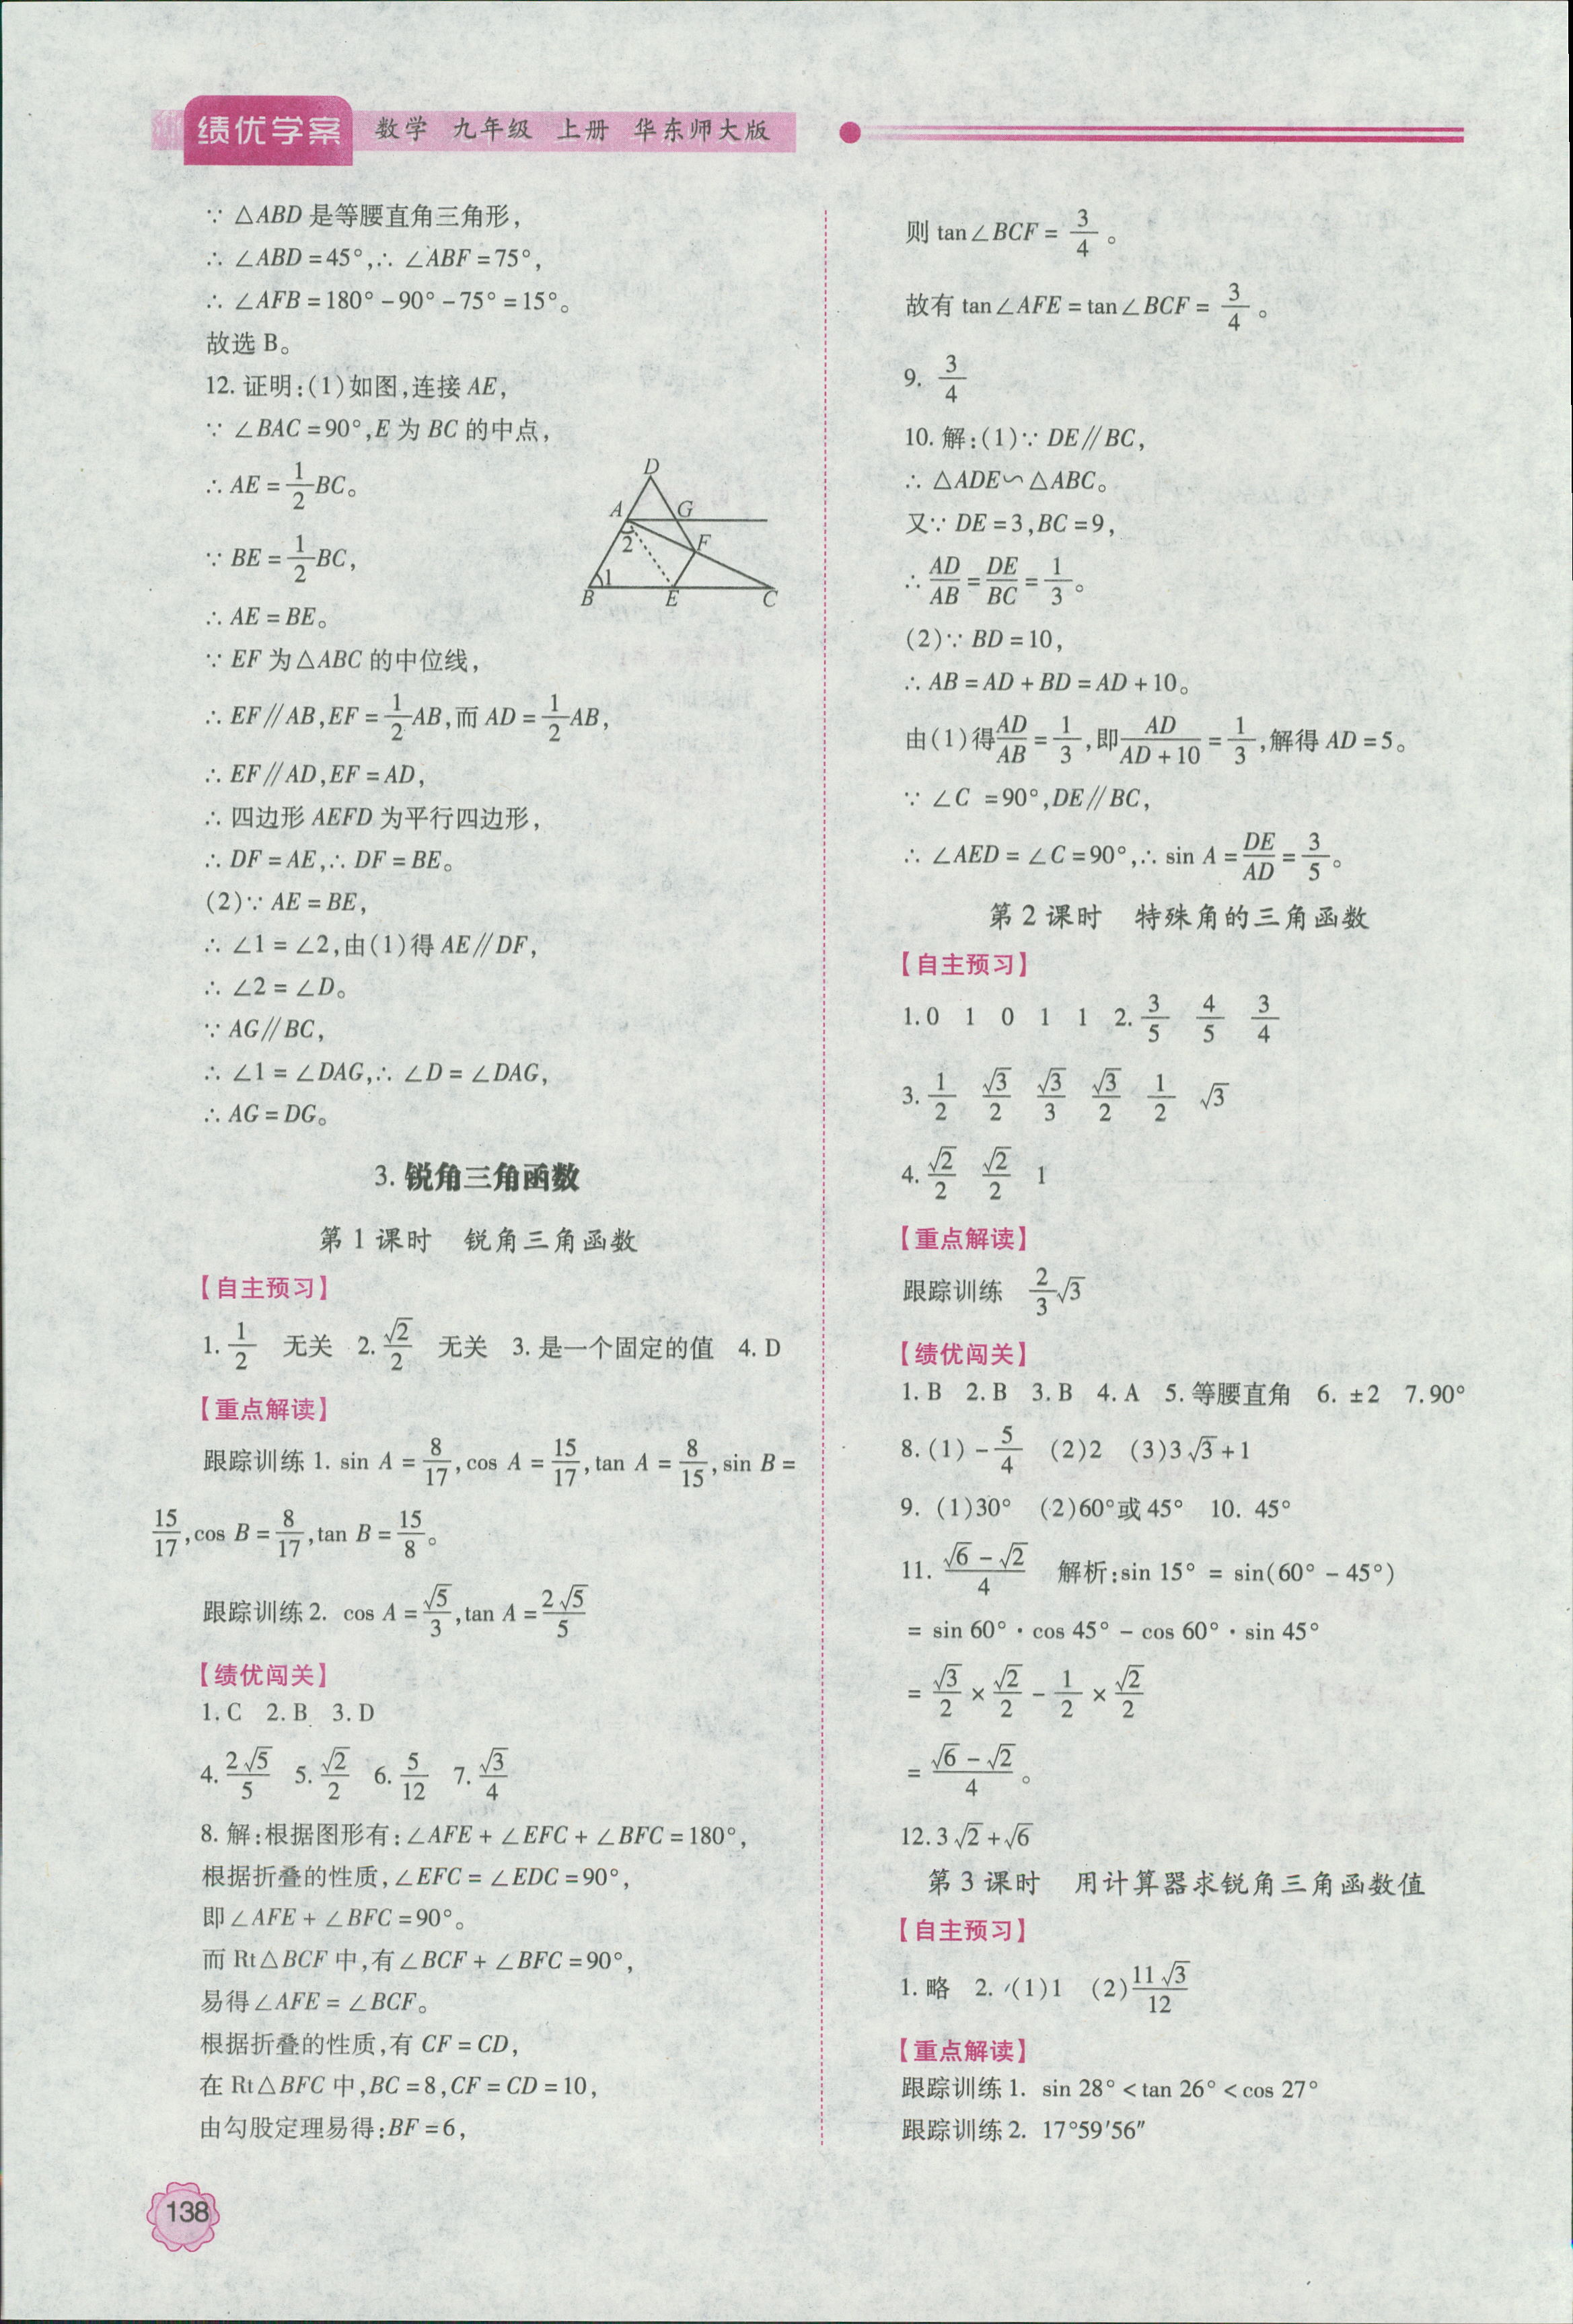 绩优学案 数学 九年级 上册 华东师大版
∵ △ABD 是等腰直角三角形,
∴ ∠ABD=45°,∴ ∠ABF=75°,
∴ ∠AFB=180°-90°-75°=15°。
故选 B。
12. 证明:(1)如图,连接 AE,
∵ ∠BAC=90°,E 为 BC 的中点,
∴ AE=1/2 BC。
∵ BE=1/2 BC,
∴ AE=BE。
D
A G
2 F
1
B E C
∵ EF 为△ABC 的中位线,
∴ EF∥AB,EF=1/2 AB,而 AD=1/2 AB,
∴ EF∥AD,EF=AD,
∴ 四边形 AEFD 为平行四边形,
∴ DF=AE,∴ DF=BE。
(2)∵ AE=BE,
∴ ∠1=∠2,由(1)得 AE∥DF,
∴ ∠2=∠D。
∵ AG∥BC,
∴ ∠1=∠DAG,∴ ∠D=∠DAG,
∴ AG=DG。
3. 锐角三角函数
第 1 课时 锐角三角函数
【自主预习】
1. 1/2 无关 2. √2/2 无关 3. 是一个固定的值 4. D
【重点解读】
跟踪训练 1. sin A=8/17,cos A=15/17,tan A=8/15,sin B=
15/17,cos B=8/17,tan B=15/8。
跟踪训练 2. cos A=√5/3,tan A=2√5/5
【绩优闯关】
1. C 2. B 3. D
4. 2√5/5 5. √2/2 6. 5/12 7. √3/4
8. 解:根据图形有:∠AFE+∠EFC+∠BFC=180°,
根据折叠的性质,∠EFC=∠EDC=90°,
即∠AFE+∠BFC=90°。
而 Rt△BCF 中,有∠BCF+∠BFC=90°,
易得∠AFE=∠BCF。
根据折叠的性质,有 CF=CD,
在 Rt△BFC 中,BC=8,CF=CD=10,
由勾股定理易得:BF=6,
则 tan∠BCF=3/4。
故有 tan∠AFE=tan∠BCF=3/4。
9. 3/4
10. 解:(1)∵ DE∥BC,
∴ △ADE∽△ABC。
又∵ DE=3,BC=9,
∴ AD/AB=DE/BC=1/3。
(2)∵ BD=10,
∴ AB=AD+BD=AD+10。
由(1)得AD/AB=1/3,即AD/(AD+10)=1/3,解得 AD=5。
∵ ∠C =90°,DE∥BC,
∴ ∠AED=∠C=90°,∴ sin A=DE/AD=3/5。
第 2 课时 特殊角的三角函数
【自主预习】
1. 0 1 0 1 1 2. 3/5 4/5 3/4
3. 1/2 √3/2 √3/3 √3/2 1/2 √3
4. √2/2 √2/2 1
【重点解读】
跟踪训练 2/3 √3
【绩优闯关】
1. B 2. B 3. B 4. A 5. 等腰直角 6. ±2 7. 90°
8. (1)-5/4 (2)2 (3)3√3+1
9. (1)30° (2)60°或 45° 10. 45°
11. (√6-√2)/4 解析:sin 15° = sin(60°-45°)
= sin 60°·cos 45°-cos 60°·sin 45°
= √3/2×√2/2-1/2×√2/2
= (√6-√2)/4。
12. 3√2+√6
第 3 课时 用计算器求锐角三角函数值
【自主预习】
1. 略 2. (1)1 (2)11√3/12
【重点解读】
跟踪训练 1. sin 28°<tan 26°<cos 27°
跟踪训练 2. 17°59′56″
138